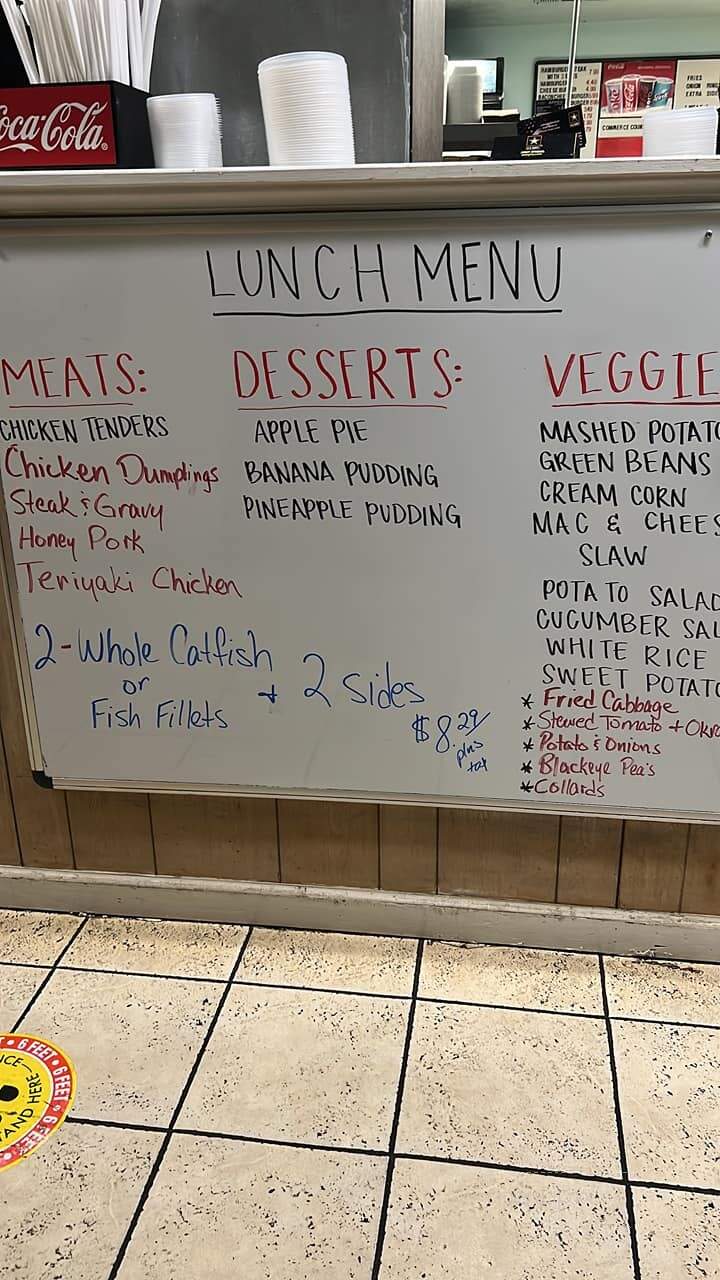 Coca-Cola
LUNCH MENU
MEATS:
CHICKEN TENDERS
Chicken Dumplings
Steak & Gravy
Honey Pork
Teriyaki Chicken
DESSERTS:
APPLE PIE
BANANA PUDDING
PINEAPPLE PUDDING
VEGGIE
MASHED POTATO
GREEN BEANS
CREAM CORN
MAC & CHEES
SLAW
POTATO SALAD
CUCUMBER SAL
WHITE RICE
SWEET POTATO
* Fried Cabbage
* Stewed Tomato + Okra
* Potato & Onions
* Blackeye Pea's
* Collards
2-Whole Catfish
or
Fish Fillets
+ 2 Sides
$8.29/
plus
tax
6 FEET • 6 FEET